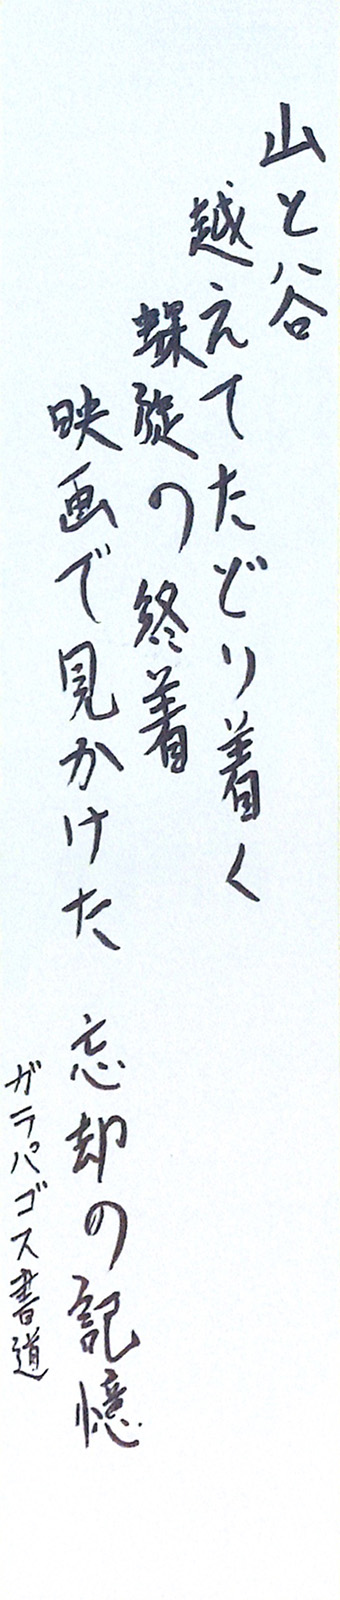 山と谷
越えてたどり着く
螺旋の終着
映画で見かけた 忘却の記憶
ガラパゴス書道